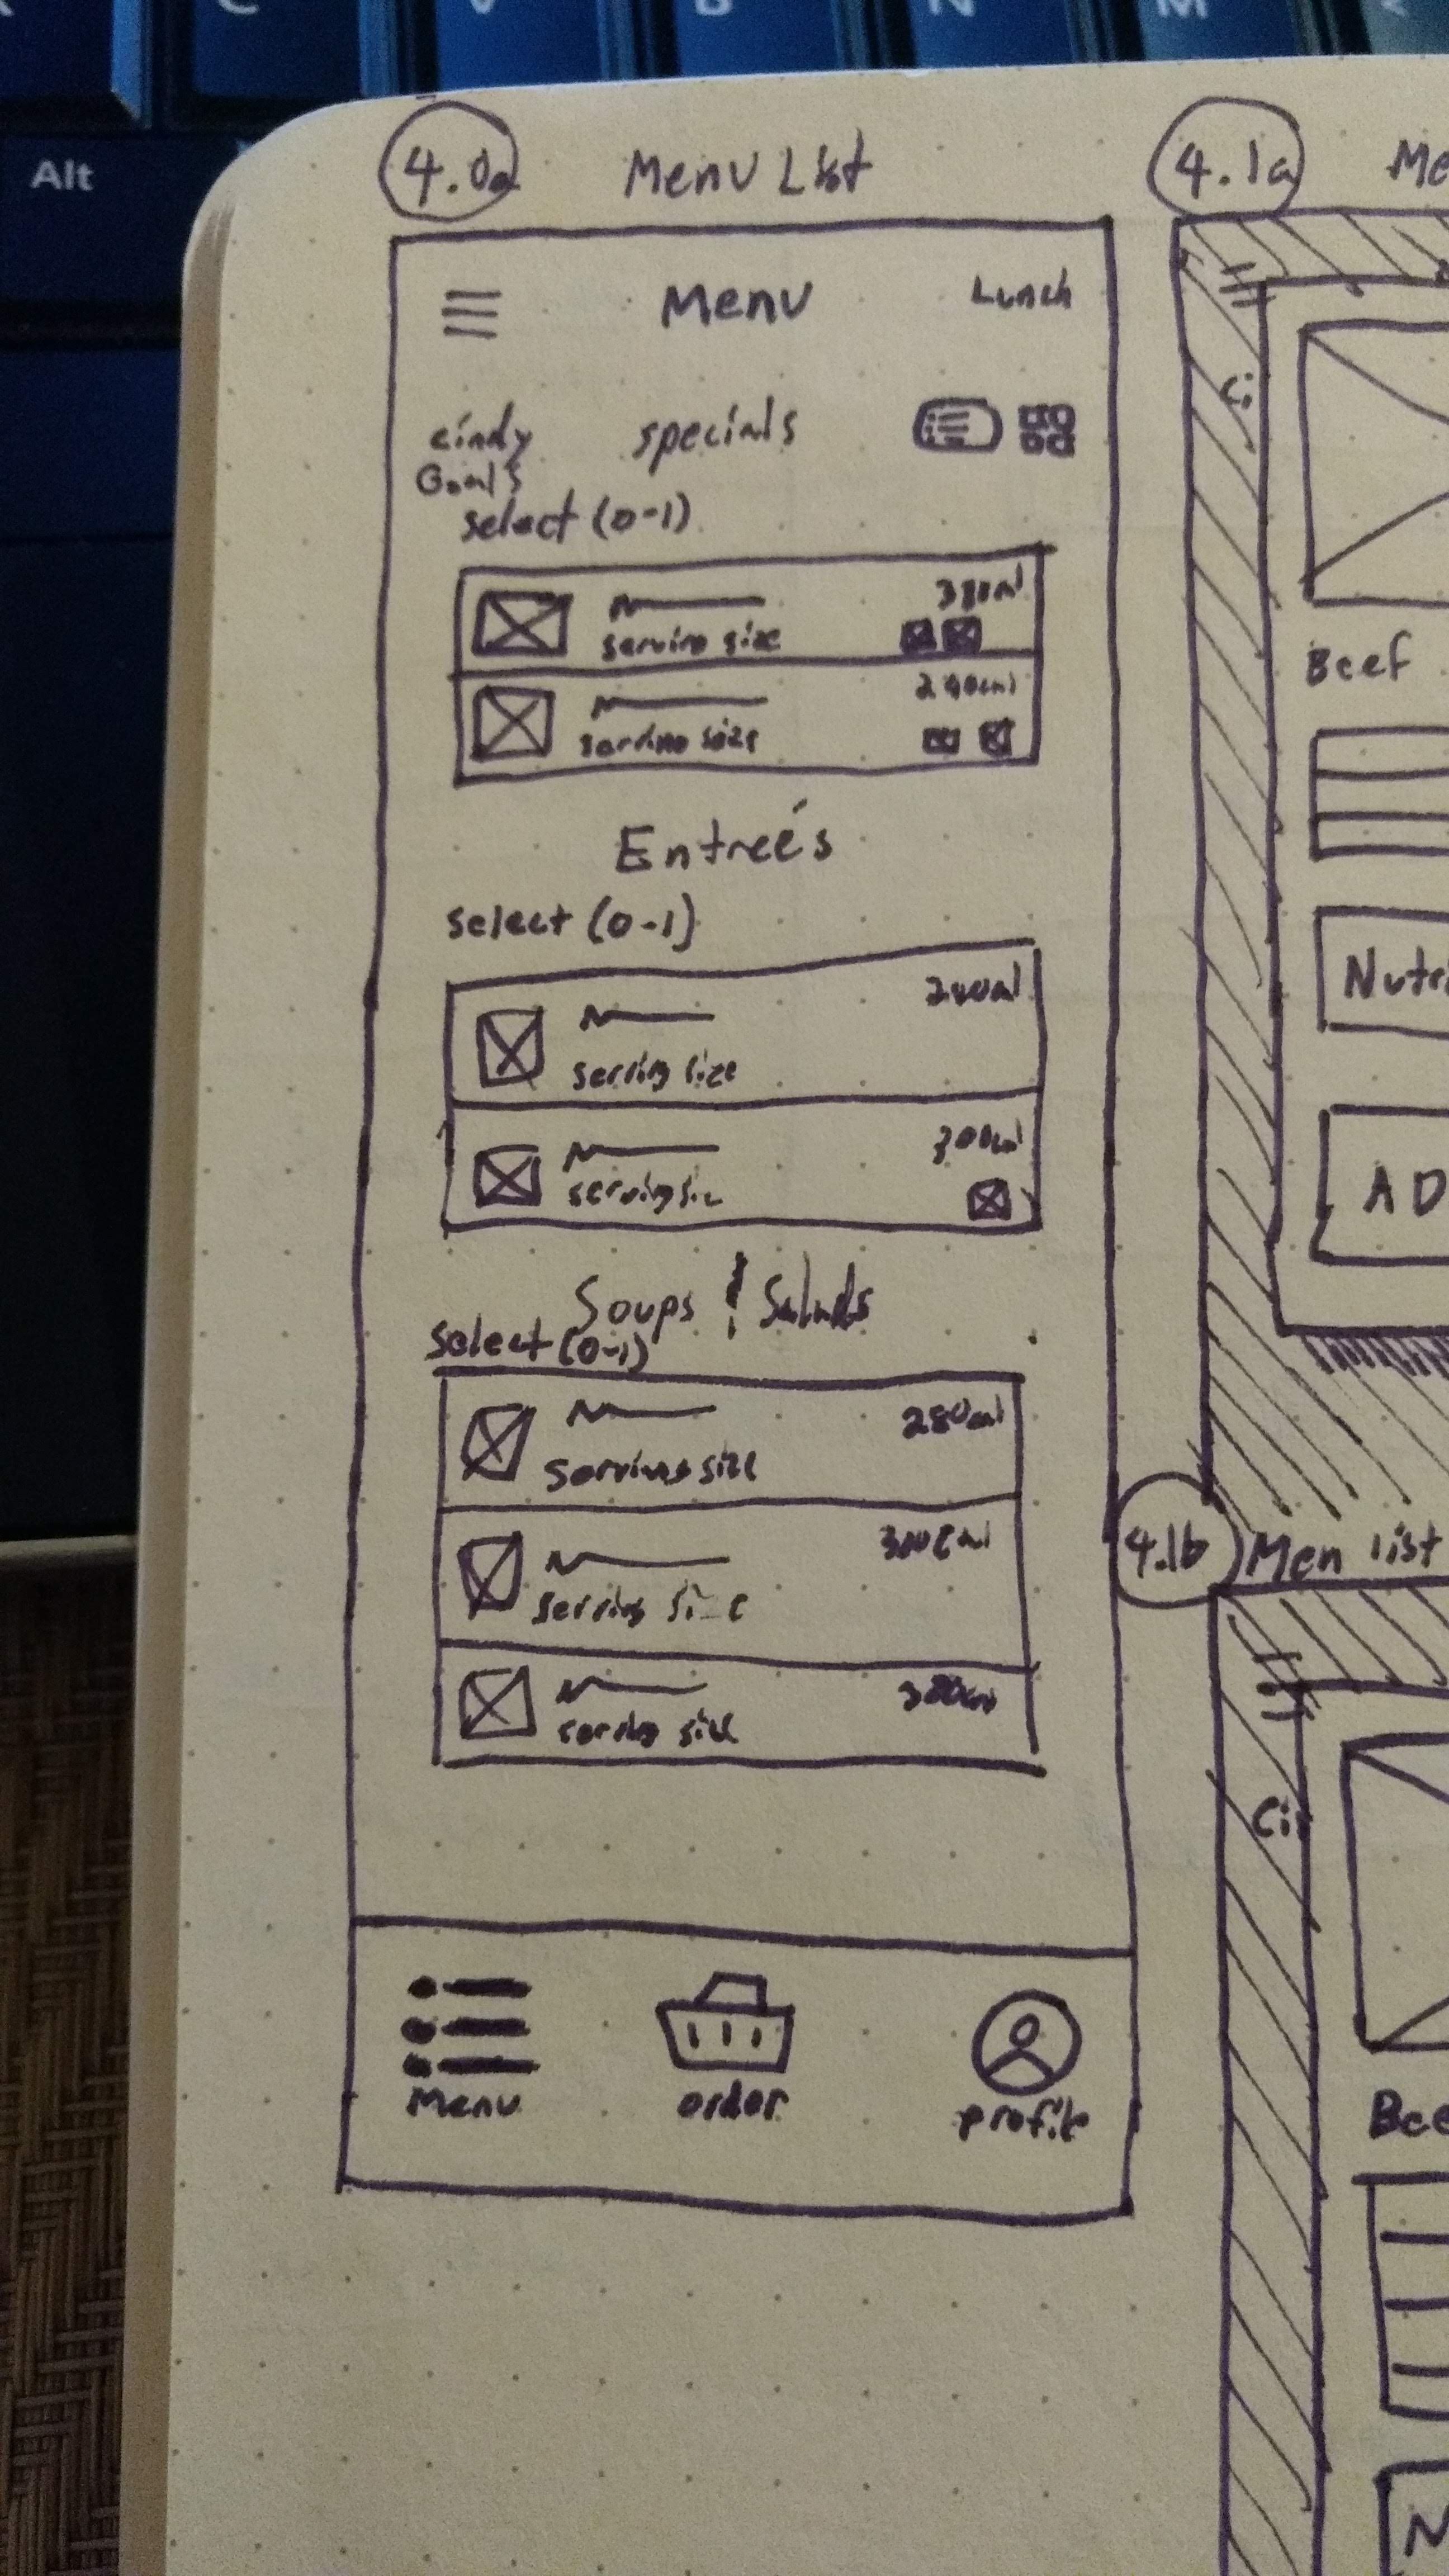 C V B N M
Alt
4.0a Menu List
Menu Lunch
cindy specials
Goals
select (0-1)
serving size
serving size
Entreés
select (0-1)
280cal
serving size
300cal
serving size
Soups & Salads
select (0-1)
280cal
serving size
300cal
serving size
serving size
Menu order profile
4.1a Me
Ci
Beef
Nutri
AD
4.1b Men list
Ci
Bee
N